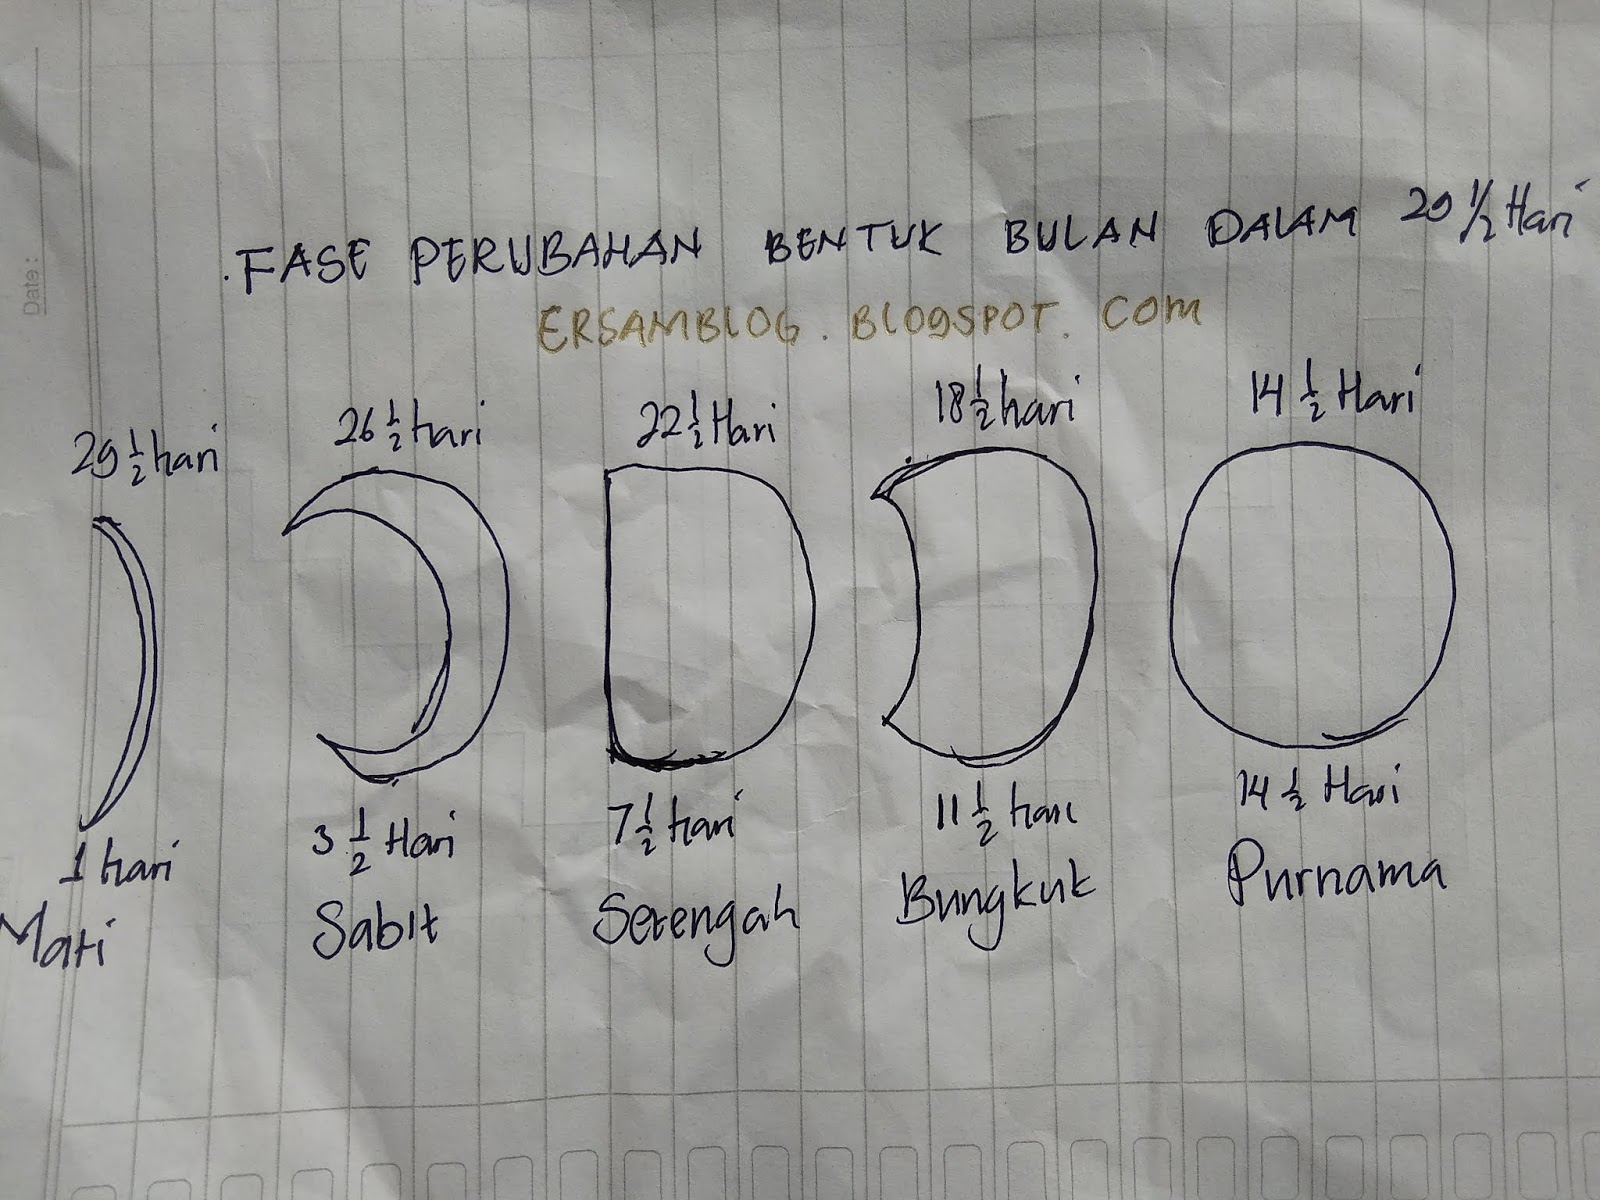 Date :
. FASE PERUBAHAN BENTUK BULAN DALAM 29 1/2 Hari
ERSAMBLOG . BLOGSPOT . COM
29 1/2 hari 26 1/2 hari 22 1/2 Hari 18 1/2 hari 14 1/2 Hari
1 hari 3 1/2 Hari 7 1/2 hari 11 1/2 hari 14 1/2 Hari
Mati Sabit Setengah Bungkuk Purnama